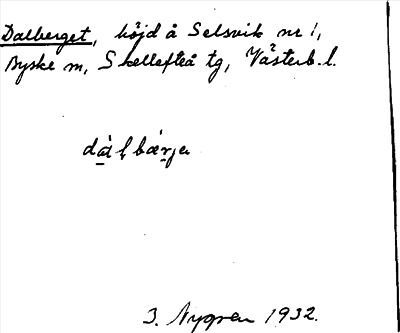 Dalberget, höjd å Selsvik nr 1,
Byske sn, Skellefteå tg, Västerb. l.
J. Nygren 1932.